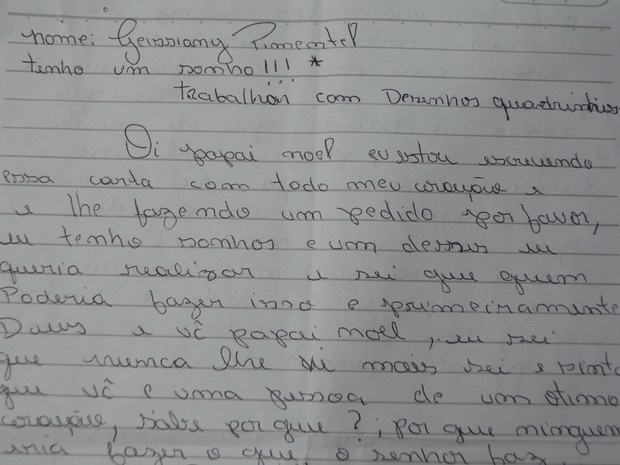 nome: Geissiany Pimentel
tenho um sonho!!! *
trabalhar com Desenhos quadrinhos
Oi papai noel eu estou escrevendo
essa carta com todo meu coração e
e lhe fazendo um pedido por favor,
eu tenho sonhos e um desses eu
queria realizar e sei que quem
Poderia fazer isso e primeiramente
Deus e vê papai noel, eu sei
que nunca lhe vi mais sei e sinto
que vê e uma pessoa de um otimo
coração, sabe por que?, por que ninguem
iria fazer o que o senhor faz